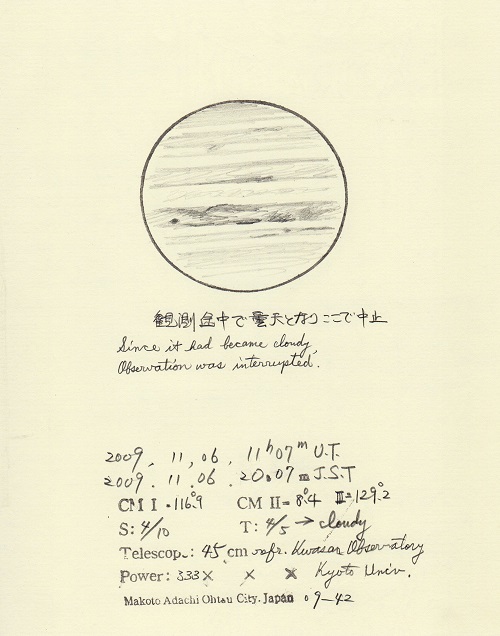 観測途中で曇天となりここで中止
Since it had became cloudy,
Observation was interrupted.
2009. 11, 06. 11h07m U.T.
2009. 11. 06. 20.07m J.S.T
CM I = 116.°9 CM II= 8.°4 III=129.°2
S: 4/10 T: 4/5 → cloudy
Telescop.: 45 cm refr. Kwasan Observatory
Power: 333× × × Kyoto Univ.
Makoto Adachi Ohtsu City, Japan 09-42